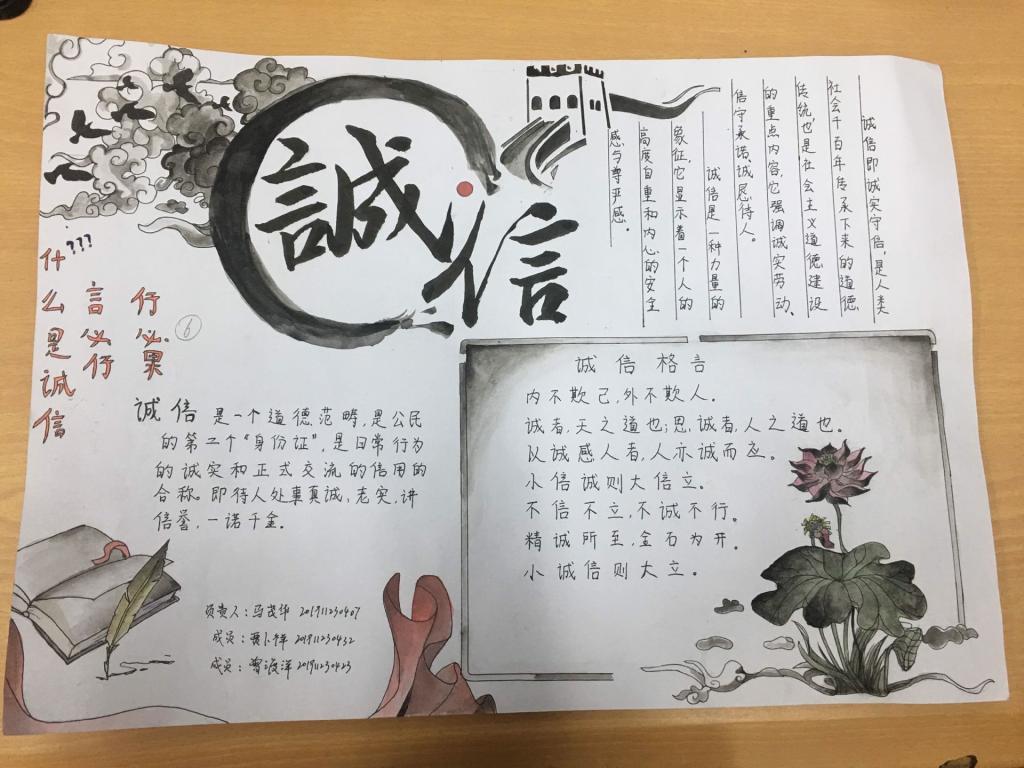 誠信
诚信即诚实守信,是人类
社会千百年传承下来的道德
传统,也是社会主义道德建设
的重点内容,它强调诚实劳动、
信守承诺,诚恳待人。
诚信是一种力量的
象征,它显示着一个人的
高度自重和内心的安全
感与尊严感。
什么是诚信
???
言必行
行必果
6
诚信 是一个道德范畴,是公民
的第二个“身份证”,是日常行为
的诚实和正式交流的信用的
合称。即待人处事真诚,老实,讲
信誉,一诺千金。
诚信格言
内不欺己,外不欺人。
诚者,天之道也;思,诚者,人之道也。
以诚感人者,人亦诚而应。
小信诚则大信立。
不信不立,不诚不行。
精诚所至,金石为开。
小诚信则大立。
负责人:马茂华 201911230407
成员: 201911230432
成员: 201911230423